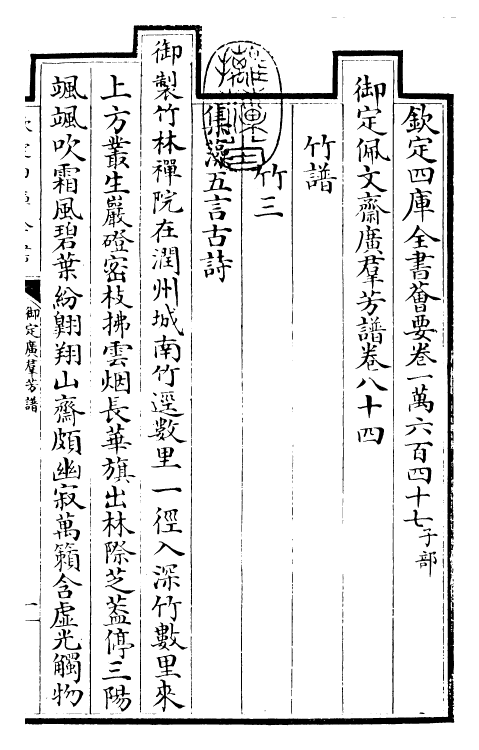 欽定四庫全書薈要卷一萬六百四十七子部
御定佩文齋廣羣芳譜卷八十四
竹譜
竹三
集藻五言古詩
御製竹林禪院在潤州城南竹逕數里一徑入深竹數里來
上方叢生巖磴密枝拂雲烟長華旗出林際芝葢停三陽
颯颯吹霜風碧葉紛翺翔山齋頗幽寂萬籟含虛光觸物
御定廣羣芳譜
一